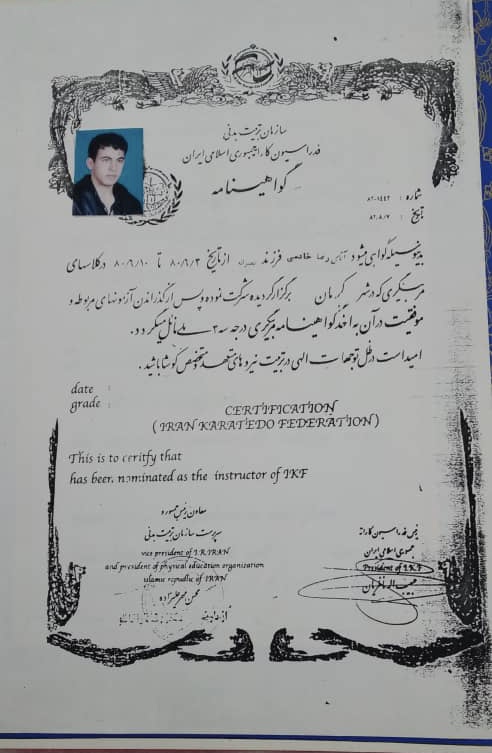 سازمان تربیت بدنی
فدراسیون کاراته جمهوری اسلامی ایران
گواهینامه
شماره : ۸۲-۱۴۴۲
تاریخ : ۸۲/۸/۷
بدینوسیله گواهی میشود آقای رضا خادمی فرزند از تاریخ ۸۰/۶/۳ تا ۸۰/۶/۱۰ در کلاسهای
مربیگری که در شهر کرمان برگزار گردیده شرکت نموده و پس از گذراندن آزمونهای مربوطه و
موفقیت در آن به اخذ گواهینامه مربیگری درجه ۳ ملی نائل میگردد.
امید است در ظل توجهات الهی در تربیت نیروهای متعهد و متخصص کوشا باشید.
date :
grade :
CERTIFICATION
( IRAN KARATEDO FEDERATION )
This is to ceritfy that
has been nominated as the instructor of IKF
معاون رئیس جمهور و
سرپرست سازمان تربیت بدنی
vice president of I.R.IRAN
and president of physical education organization
islamic republic of IRAN
محسن مهرعلیزاده
رئیس فدراسیون کاراته
جمهوری اسلامی ایران
President of I.K.F